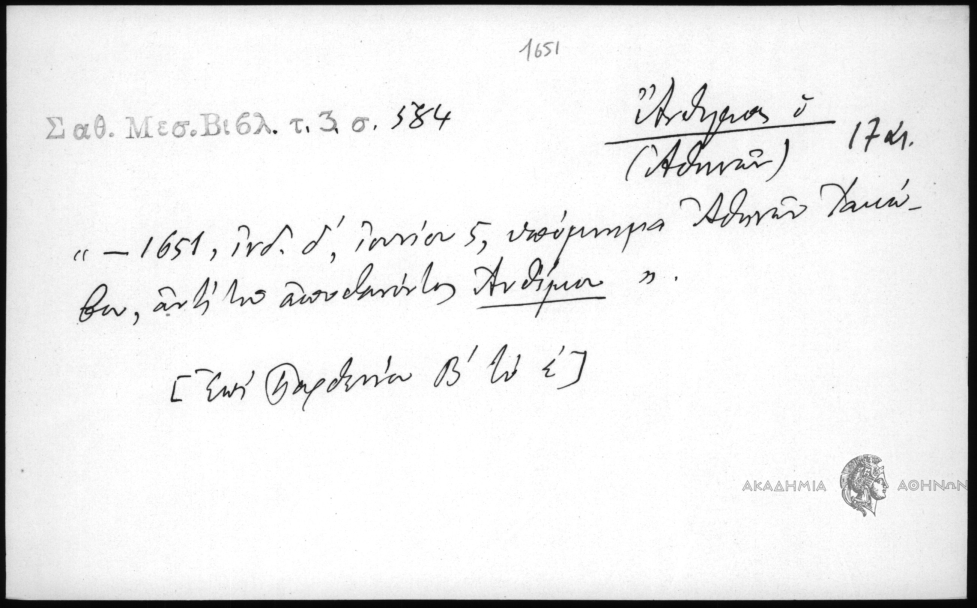 1651
Σαθ. Μεσ. Βιβλ. τ. 3. σ. 584
Ἄνθιμος ὁ
(Ἀθηνῶν)
17 αἰ.
“ — 1651, ἰνδ. δ΄, ἰουνίου 5, ὑπόμνημα Ἀθηνῶν Ἰακώ-
βου, ἀντὶ τοῦ ἀποθανόντος Ἀνθίμου ”.
[Ἐπὶ Παρθενίου Β΄ τὸ έ]
ΑΚΑΔΗΜΙΑ ΑΘΗΝΩΝ